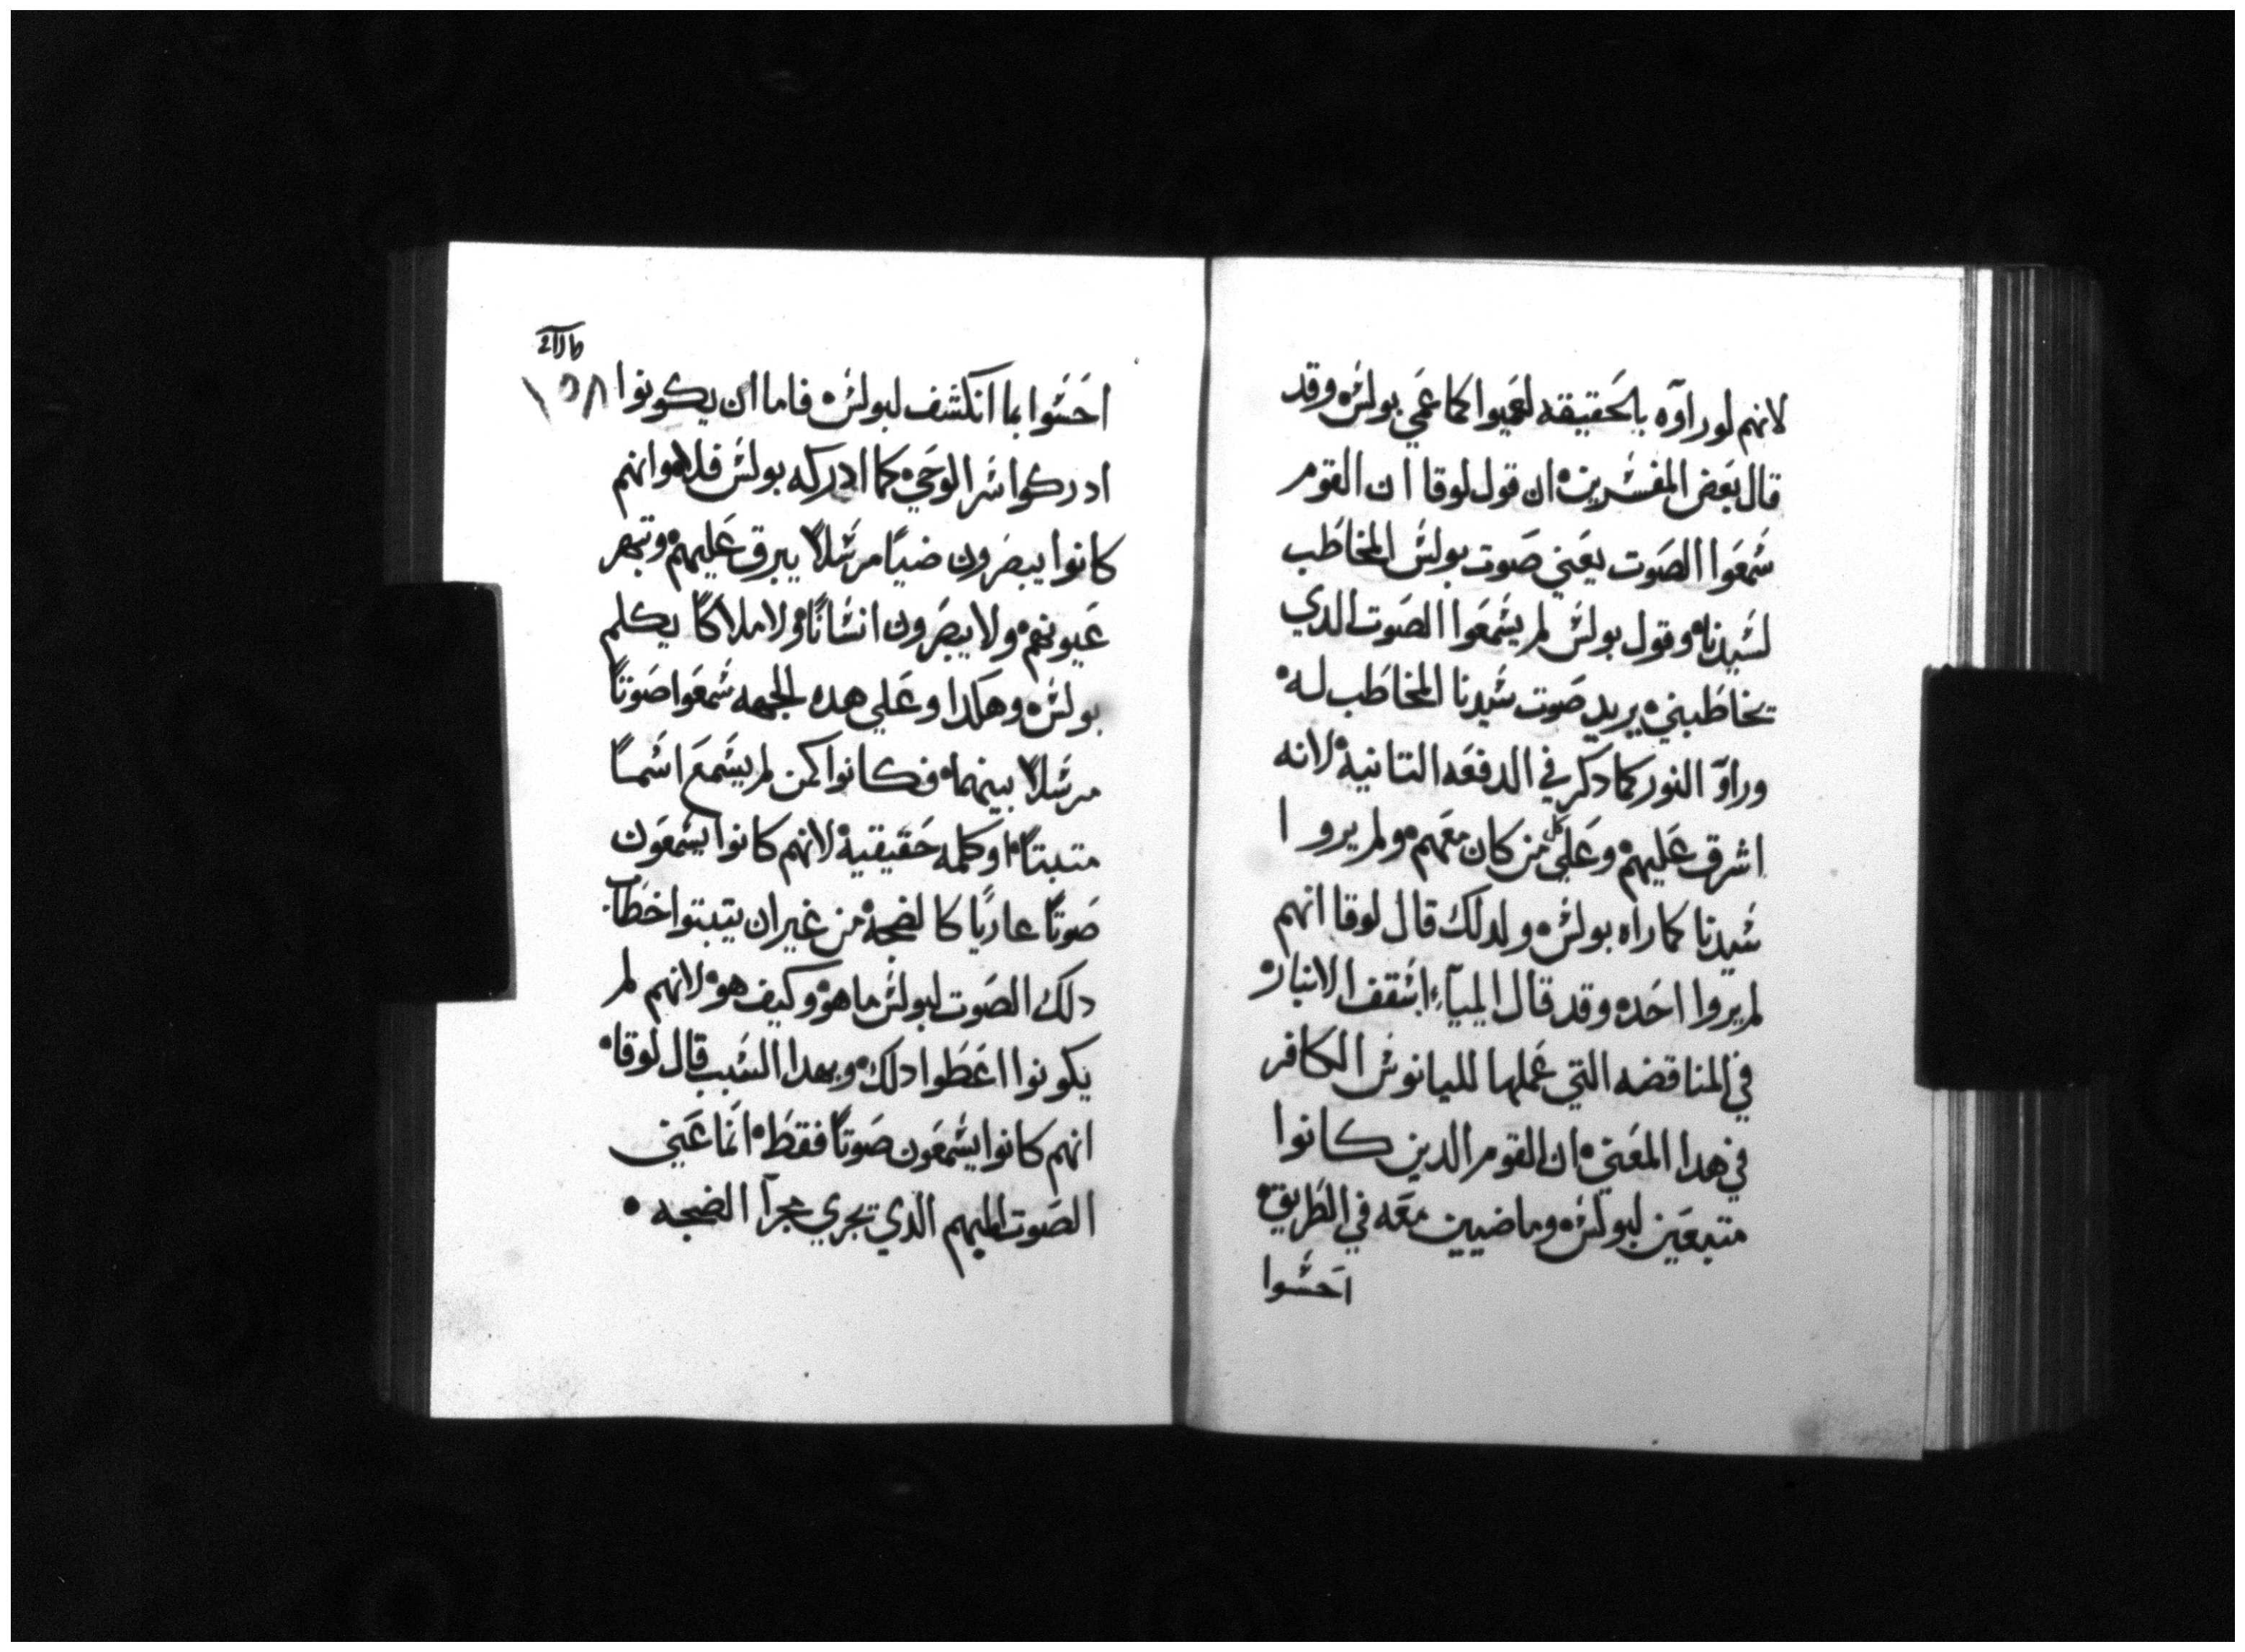 لانهم لو راوه بالحقيقه لعميوا كما عمي بولس وقد
قال بعض المفسرين ان قول لوقا ان القوم
سمعوا الصوت يعني صوت بولس المخاطب
لسيدنا وقول بولس لم يسمعوا الصوت الدي
يخاطبني يريد صوت سيدنا المخاطب له
وراوا النور كما دكر في الدفعه التانيه لانه
اشرق عليهم وعلي كل من كان معهم ولم يروا
سيدنا كما راه بولس ولدلك قال لوقا انهم
لم يروا احد وقد قال ايلياء اسقف الانبار
في المناقضه التي عملها لليانوس الكافر
في هدا المعني ان القوم الدين كانوا
متبعين لبولس وماضيين معه في الطريق
احسوا
احسوا بما انكشف لبولس فاما ان يكونوا
ادركوا سر الوحي كما ادركه بولس فلا هوا انهم
كانوا يبصرون ضيا مرسلا يبرق عليهم وتبهر
عيونهم ولا يبصرون انسانا ولا ملاكا يكلم
بولس وهكدا وعلي هده الجهه سمعوا صوتا
مرسلا بينهما فكانوا كمن لم يسمع اسما
متبتا او كلمه حقيقيه لانهم كانوا يسمعون
صوتا عاديا كالضجه من غير ان يتبتوا خطاب
دلك الصوت لبولس ما هو وكيف هو لانهم لم
يكونوا اعطوا دلك وبهدا السبب قال لوقا
انهم كانوا يسمعون صوتا فقط انما عني
الصوت المبهم الدي يجري مجرا الضجه